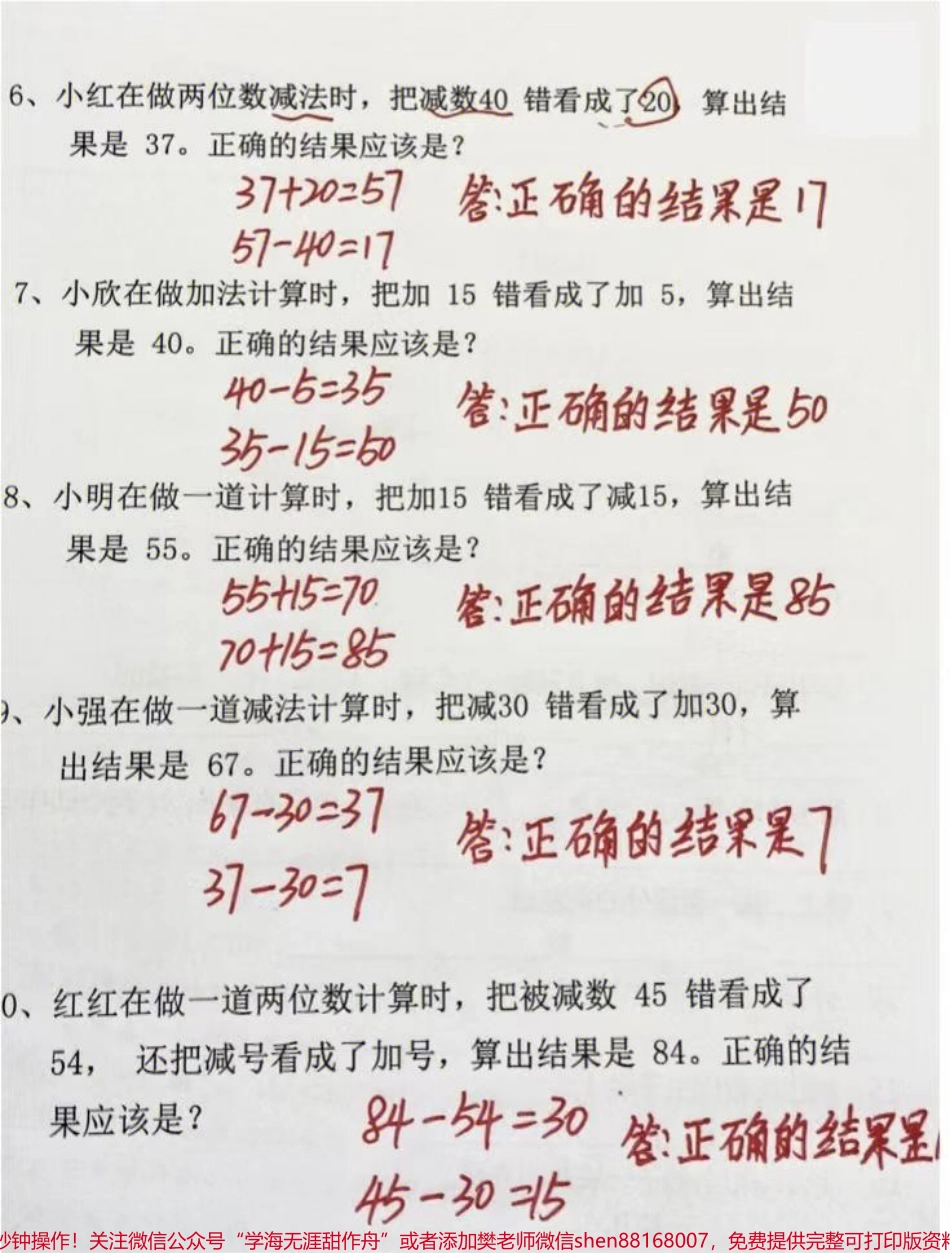 6、小红在做两位数减法时，把减数40 错看成了20，算出结
果是 37。正确的结果应该是？
37+20=57 答:正确的结果是17
57-40=17
7、小欣在做加法计算时，把加 15 错看成了加 5，算出结
果是 40。正确的结果应该是？
40-5=35 答:正确的结果是50
35-15=50
8、小明在做一道计算时，把加15 错看成了减15，算出结
果是 55。正确的结果应该是？
55+15=70 答:正确的结果是85
70+15=85
9、小强在做一道减法计算时，把减30 错看成了加30，算
出结果是 67。正确的结果应该是？
67-30=37 答:正确的结果是7
37-30=7
0、红红在做一道两位数计算时，把被减数 45 错看成了
54， 还把减号看成了加号，算出结果是 84。正确的结
果应该是？
84-54=30 答:正确的结果是
45-30=15
秒钟操作！关注微信公众号“学海无涯甜作舟”或者添加樊老师微信shen88168007，免费提供完整可打印版资料